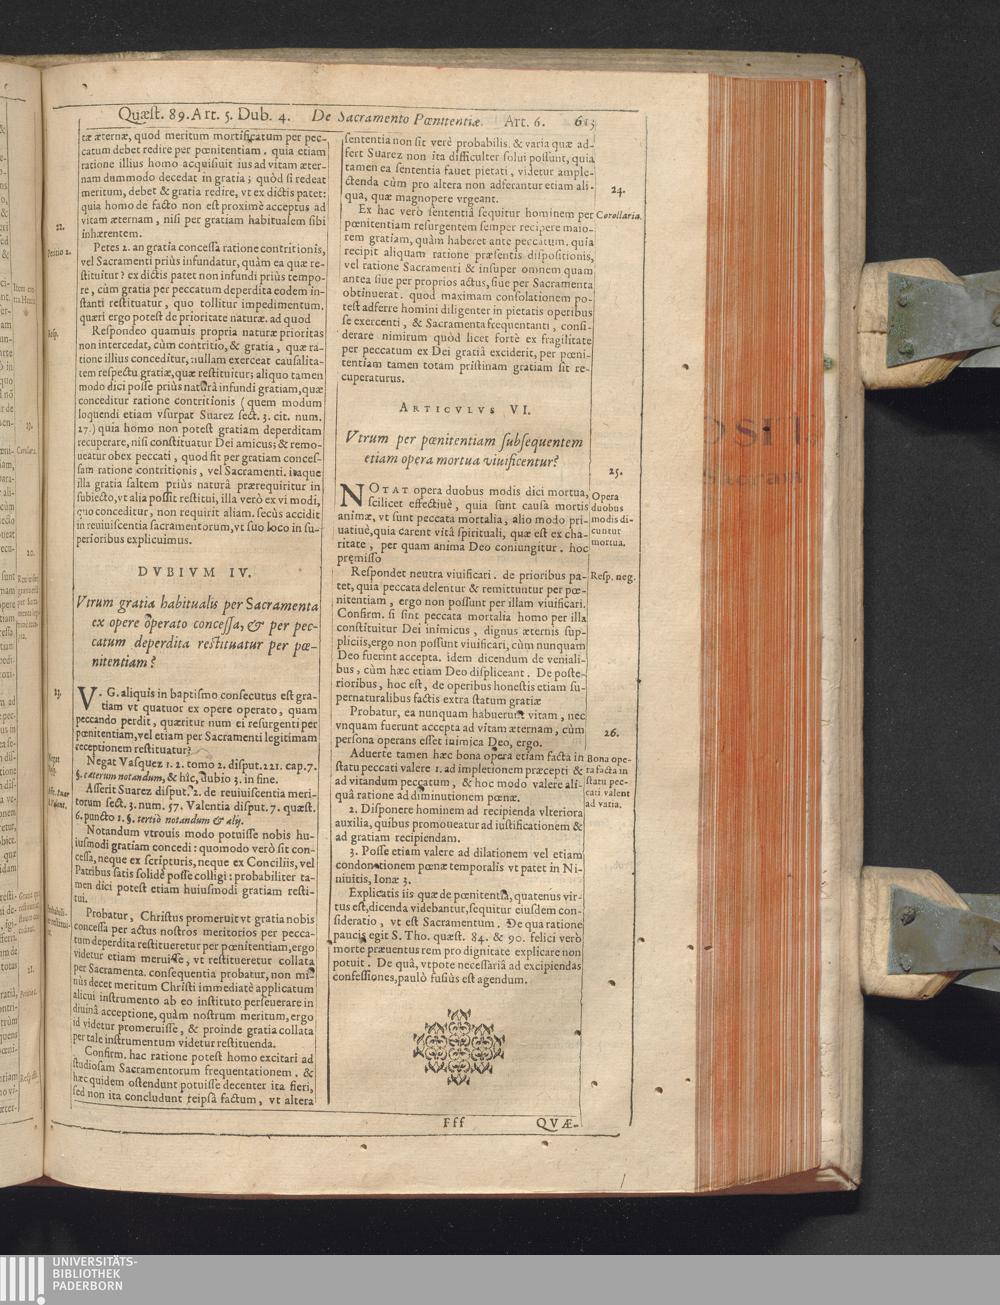 Quæst. 89. Art. 5. Dub. 4. De Sacramento Pœnitentiæ. Art. 6. 613
tæ æternæ, quod meritum mortificatum per pec-
catum debet redire per pœnitentiam. quia etiam
ratione illius homo acquisiuit ius ad vitam æter-
nam dummodo decedat in gratia; quòd si redeat
meritum, debet & gratia redire, vt ex dictis patet:
quia homo de facto non est proximè acceptus ad
vitam æternam, nisi per gratiam habitualem sibi
inhærentem.
22.
Petitio 2.
Petes 2. an gratia concessa ratione contritionis,
vel Sacramenti priùs infundatur, quàm ea quæ re-
stituitur? ex dictis patet non infundi priùs tempo-
re, cùm gratia per peccatum deperdita eodem in-
stanti restituatur, quo tollitur impedimentum.
quæri ergo potest de prioritate naturæ. ad quod
Resp.
Respondeo quamuis propria naturæ prioritas
non intercedat, cùm contritio, & gratia, quæ ra-
tione illius conceditur, nullam exerceat causalita-
tem respectu gratiæ, quæ restituitur; aliquo tamen
modo dici posse priùs naturâ infundi gratiam, quæ
conceditur ratione contritionis (quem modum
loquendi etiam vsurpat Suarez sect. 3. cit. num.
27.) quia homo non potest gratiam deperditam
recuperate, nisi constituatur Dei amicus; & remo-
ueatur obex peccati, quod fit per gratiam conces-
sam ratione contritionis, vel Sacramenti. itaque
illa gratia saltem priùs naturâ prærequiritur in
subiecto, vt alia possit restitui, illa verò ex vi modi,
quo conceditur, non requirit aliam. secùs accidit
in reuiuiscentia sacramentorum, vt suo loco in su-
perioribus explicuimus.
DVBIVM IV.
Vtrum gratia habitualis per Sacramenta
ex opere operato concessa, & per pec-
catum deperdita restituatur per pœ-
nitentiam?
23.
V. G. aliquis in baptismo consecutus est gra-
tiam vt quatuor ex opere operato, quam
peccando perdit, quæritur num ei resurgenti per
pœnitentiam, vel etiam per Sacramenti legitimam
receptionem restituatur?
Negat
Negat Vasquez 1. 2. tomo 2. disput. 221. cap. 7.
§. cæterum notandum, & hîc, dubio 3. in fine.
Asserit Suarez disput. 2. de reuiuiscentia meri-
torum sect. 3. num. 57. Valentia disput. 7. quæst.
6. puncto 1. §. tertiò notandum & alij.
Notandum vtrouis modo potuisse nobis hu-
iusmodi gratiam concedi: quomodo verò sit con-
cessa, neque ex scripturis, neque ex Conciliis, vel
Patribus satis solidè posse colligi: probabiliter ta-
men dici potest etiam huiusmodi gratiam resti-
tui.
Probatur, Christus promeruit vt gratia nobis
concessa per actus nostros meritorios per pecca-
tum deperdita restitueretur per pœnitentiam, ergo
videtur etiam meruisse, vt restitueretur collata
per Sacramenta. consequentia probatur, non mi-
nùs decet meritum Christi immediatè applicatum
alicui instrumento ab eo instituto perseuerare in
diuinâ acceptione, quàm nostrum meritum, ergo
id videtur promeruisse, & proinde gratia collata
per tale instrumentum videtur restituenda.
Confirm. hac ratione potest homo excitari ad
studiosam Sacramentorum frequentationem. &
hæc quidem ostendunt potuisse decenter ita fieri,
sed non ita concludunt reipsâ factum, vt altera
sententia non sit verè probabilis. & varia quæ ad-
fert Suarez non ita difficulter solui possunt, quia
tamen ea sententia fauet pietati, videtur ample-
ctenda cùm pro altera non adferantur etiam ali-
qua, quæ magnopere vrgeant.
24.
Corollaria.
Ex hac verò sententiâ sequitur hominem per
pœnitentiam resurgentem semper recipere maio-
rem gratiam, quàm haberet ante peccatum. quia
recipit aliquam ratione præsentis dispositionis,
vel ratione Sacramenti & insuper omnem quam
antea siue per proprios actus, siue per Sacramenta
obtinuerat. quod maximam consolationem po-
test adferre homini diligenter in pietatis operibus
se exercenti, & Sacramenta frequentanti, consi-
derare nimirum quòd licet fortè ex fragilitate
per peccatum ex Dei gratiâ exciderit, per pœni-
tentiam tamen totam pristinam gratiam sit re-
cuperaturus.
ARTICVLVS VI.
Vtrum per pœnitentiam subsequentem
etiam opera mortua viuificentur?
25.
Opera
duobus
modis di-
cuntur
mortua.
NOTAT opera duobus modis dici mortua,
scilicet effectiuè, quia sunt causa mortis
animæ, vt sunt peccata mortalia, alio modo pri-
uatiuè, quia carent vitâ spirituali, quæ est ex cha-
ritate, per quam anima Deo coniungitur. hoc
premisso
Resp. neg.
Respondet neutra viuificari. de prioribus pa-
tet, quia peccata delentur & remittuntur per pœ-
nitentiam, ergo non possunt per illam viuificari.
Confirm. si sint peccata mortalia homo per illa
constituitur Dei inimicus, dignus æternis sup-
pliciis, ergo non possunt viuificari, cùm nunquam
Deo fuerint accepta. idem dicendum de veniali-
bus, cùm hæc etiam Deo displiceant. De poste-
rioribus, hoc est, de operibus honestis etiam su-
pernaturalibus factis extra statum gratiæ
Probatur, ea nunquam habuerunt vitam, nec
vnquam fuerunt accepta ad vitam æternam, cùm
persona operans esset inimica Deo, ergo.
26.
Bona ope-
ra facta in
statu pec-
cati valent
ad varia.
Aduerte tamen hæc bona opera etiam facta in
statu peccati valere 1. ad impletionem præcepti &
ad vitandum peccatum, & hoc modo valere ali-
quâ ratione ad diminutionem pœnæ.
2. Disponere hominem ad recipienda vlteriora
auxilia, quibus promoueatur ad iustificationem &
ad gratiam recipiendam.
3. Posse etiam valere ad dilationem vel etiam
condonationem pœnæ temporalis vt patet in Ni-
niuitis, Ionæ 3.
Explicatis iis quæ de pœnitentia, quatenùs vir-
tus est, dicenda videbantur, sequitur eiusdem con-
sideratio, vt est Sacramentum. De qua ratione
paucis egit S. Tho. quæst. 84. & 90. felici verò
morte præuentus rem pro dignitate explicare non
potuit. De quâ, vtpote necessariâ ad excipiendas
confessiones, paulò fusiùs est agendum.
Fff QVÆ-
UNIVERSITÄTS-
BIBLIOTHEK
PADERBORN